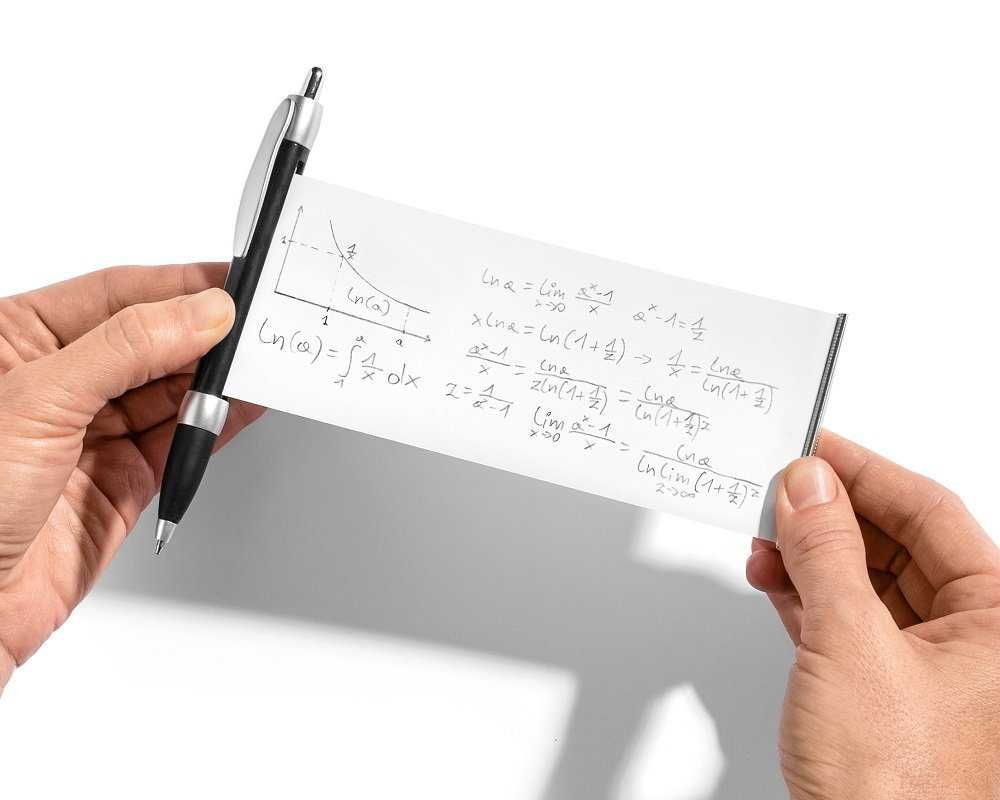 1
1/x
ln(a)
1 a
ln(a) = ∫₁ᵃ 1/x dx
ln a = lim x→0 aˣ-1/x aˣ-1 = 1/z
x ln a = ln(1+1/z) → 1/x = ln a/ln(1+1/z)
aˣ-1/x = ln a/z ln(1+1/z) = ln a/ln(1+1/z)ᶻ
z = 1/aˣ-1
lim x→0 aˣ-1/x = ln a/ln lim z→∞ (1+1/z)ᶻ